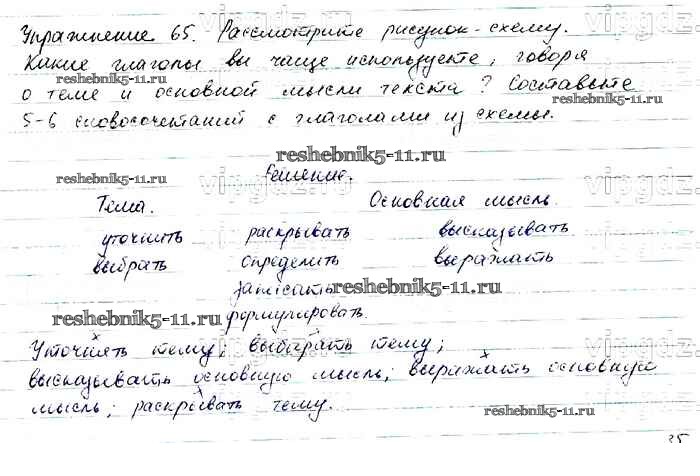 Упражнение 65. Рассмотрите рисунок-схему.
Какие глаголы вы чаще используете, говоря
о теме и основной мысли текста? Составьте
5-6 словосочетаний с глаголами из схемы.
Решение.
Тема. Основная мысль.
уточнить раскрывать высказывать
выбрать определить выражать
записать
формулировать.
Уточнять тему; выбирать тему;
высказывать основную мысль; выражать основную
мысль; раскрывать тему.
reshebnik5-11.ru
reshebnik5-11.ru
reshebnik5-11.ru
reshebnik5-11.ru
reshebnik5-11.ru
reshebnik5-11.ru
reshebnik5-11.ru
vipgdz.ru
vipgdz.ru
vipgdz.ru
vipgdz.ru